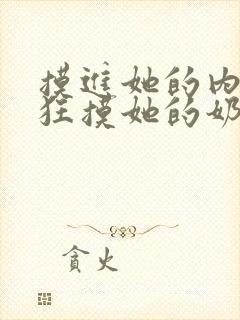 摸进她的内
狂摸她的奶
贪火